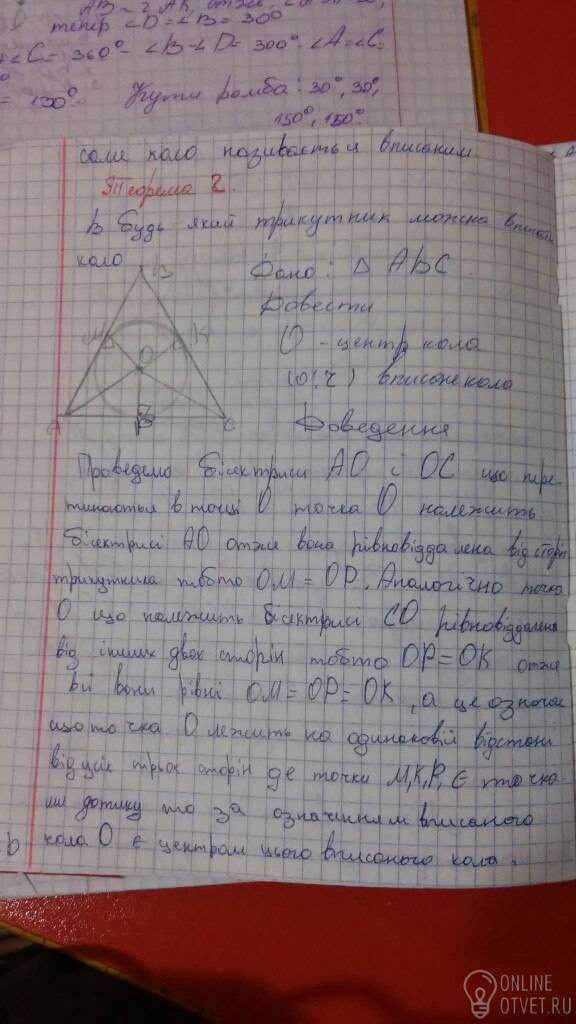 AB = 2 AK, отже,
тепер ∠D = ∠B = 30°
∠C = 360° - ∠B - ∠D = 300° ∠A = ∠C =
= 150° Кути ромба : 30°, 30°,
150°, 150°
саме коло називається вписаним
Теорема 2.
В будь який трикутник можна вписати
коло
B
Дано : Δ ABC.
Довести
M K
O - центр кола
O
(O; r) вписане коло
A P C
Доведення
Проведемо бісектриси AO і OC що пере-
тинаються в точці O точка O належить
бісектрисі AO отже вона рівновіддалена від сторін
трикутника тобто OM = OP. Аналогічно точка
O що належить бісектрисі CO рівновіддалена
від інших двох сторін тобто OP = OK отже
всі вони рівні OM = OP = OK, а це означає
що точка O лежить на однаковій відстані
від усіх трьох сторін де точки M, K, P, є точка-
ми дотику то за означенням вписаного
кола O є центром цього вписаного кола.
b
ONLINE
OTVET.RU